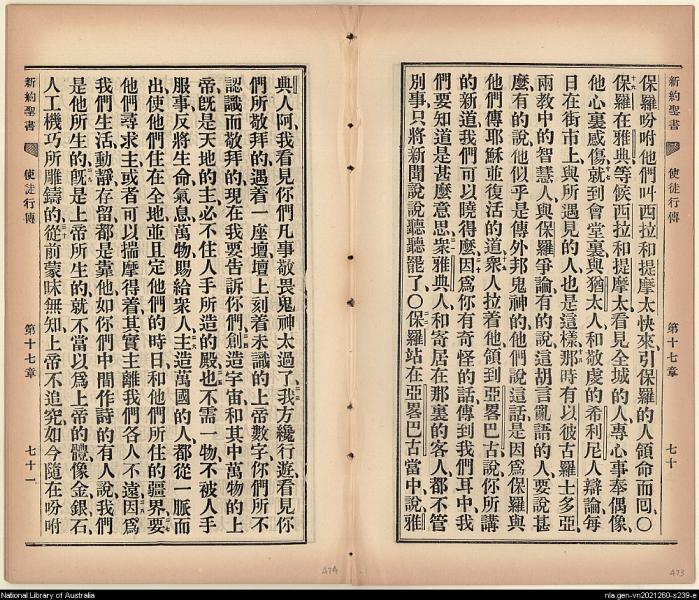 新約聖書 使徒行傳 第十七章 七十
保羅吩咐他們叫西拉和提摩太快來、引保羅的人領命而回、〇
十六 保羅在雅典、等候西拉和提摩太、看見全城的人專心事奉偶像、
他心裏感傷、十七 就到會堂裏與猶太人和敬虔的希利尼人辯論、每
日在街市上、與所遇見的人、也是這樣、十八 那時有以彼古羅士多亞
兩教中的智慧人、與保羅爭論、有的說、這胡言亂語的人、要說甚
麼、有的說、他似乎是傳外邦鬼神的、他們說這話、是因爲保羅與
他們傳耶穌並復活的道、十九 衆人拉着他、領到亞畧巴古說、你所講
的新道、我們可以曉得麼、二十 因爲你有奇怪的話、傳到我們耳中、我
們要知道是甚麼意思、二一 衆雅典人、和寄居在那裏的客人、都不管
別事、只將新聞說說聽聽罷了、〇二二 保羅站在亞畧巴古當中說、雅
典人阿、我看見你們凡事敬畏鬼神太過了、二三 我方纔行遊、看見你
們所敬拜的、遇着一座壇、壇上刻着未識的上帝數字、你們所不
認識而敬拜的、現在我要告訴你們、二四 創造宇宙和其中萬物的上
帝、旣是天地的主、必不住人手所造的殿、二五 也不需一物、不被人手
服事、反將生命氣息萬物、賜給衆人、二六 主造萬國的人、都從一脈而
出、使他們住在全地、並且定他們的時日、和他們所住的疆界、二七 要
他們尋求主、或者可以揣摩得着、其實主離我們各人不遠、二八 因爲
我們生活動靜存留、都是靠他、如你們中間作詩的有人說、我們
是他所生的、二九 旣是上帝所生的、就不當以爲上帝的體、像金銀石、
人工機巧所雕鑄的、三十 從前蒙昧無知、上帝不追究、如今隨在吩咐
新約聖書 使徒行傳 第十七章 七十一
474
473
National Library of Australia
nla.gen-vn2021260-s239-e